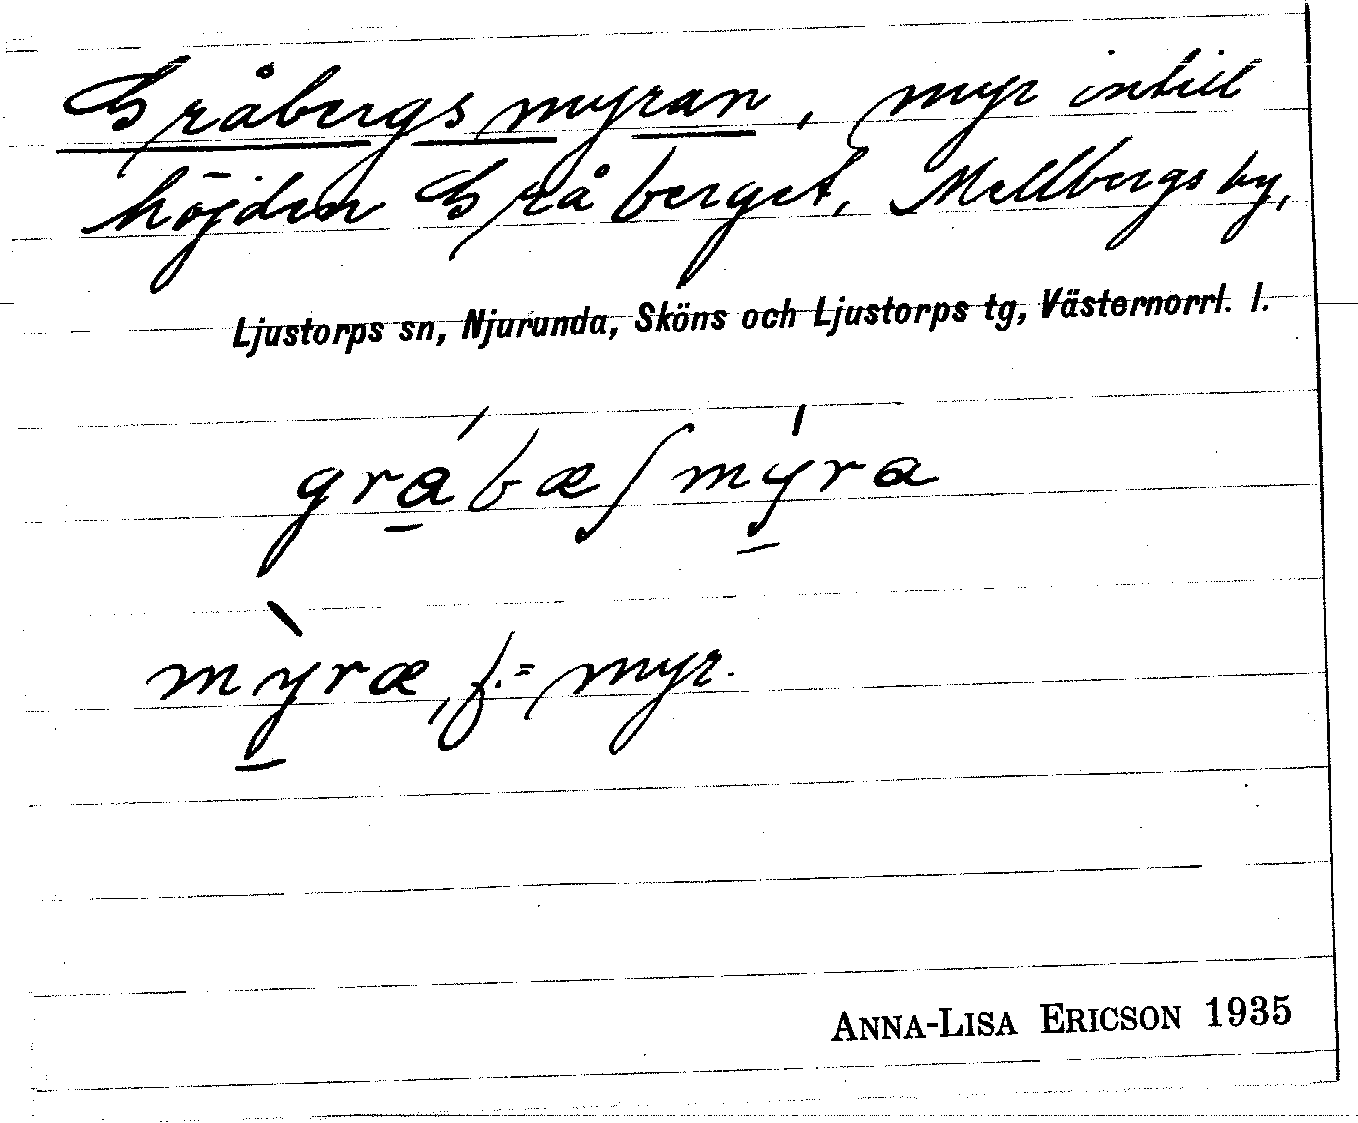 Gråbergsmyran, myr intill
höjden Gråberget, Mellbergs by,
Ljustorps sn, Njurunda, Sköns och Ljustorps tg, Västernorrl. l.
grábæʃmýra
mỳræ, f. = myr.
ANNA-LISA ERICSON 1935